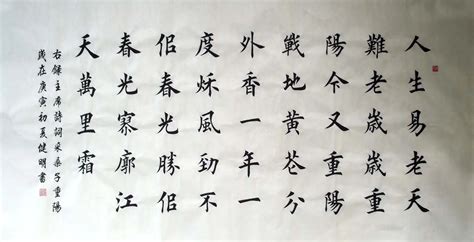 人生易老天
難老歲歲重
陽今又重陽
戰地黄花分
外香一年一
度秋風勁不
似春光勝似
春光寥廓江
天萬里霜
右錄主席詩詞采桑子重陽
歲在庚寅初夏健明書